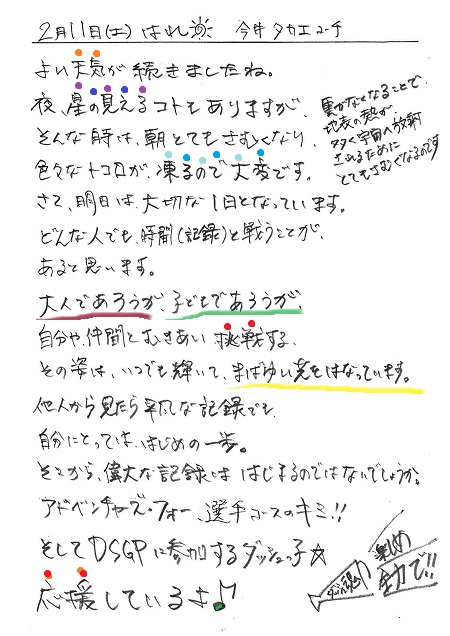 2月11日(土) はれ 今井タカエコーチ
よい天気が続きましたね。
夜、星の見えるコトもありますが、
そんな時は、朝とてもさむくなり、
色々なトコロが、凍るので大変です。
雲がなくなることで、
地表の熱が、
宇宙へ放射
されるために
とてもさむくなるのです
さて、明日は、大切な1日となっています。
どんな人でも、時間(記録)と戦うことが、
あると思います。
大人であろうが、子どもであろうが、
自分や、仲間とむきあい 挑戦する。
その姿は、いつでも輝いて、まばゆい光をはなっています。
他人から見たら平凡な記録でも、
自分にとっては、はじめの一歩。
そこから、偉大な記録は はじまるのではないでしょうか。
アドベンチャーズ・フォー、選手コースのキミ!!
そしてDSGPに参加するダッシュっ子☆
応援しているよ♪
楽しめ
全力で!!